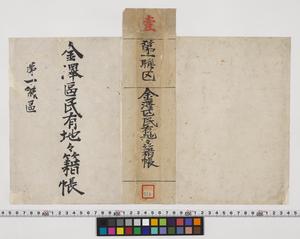 壹
第一聯区
金澤区民有地々籍帳
金澤區民有地々籍帳
第一聯區